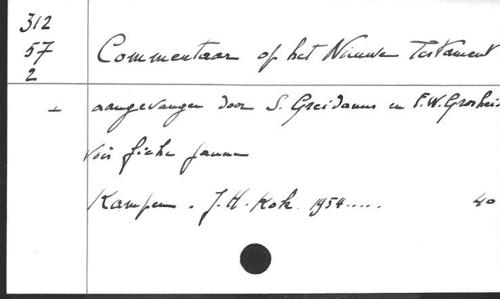 312
57
2
Commentaar op het Nieuwe Testament
± aangevangen door S. Greidanus en F.W. Grosheid
Voir fiche jaune
Kampen. J.H. Kok. 1954.....
40